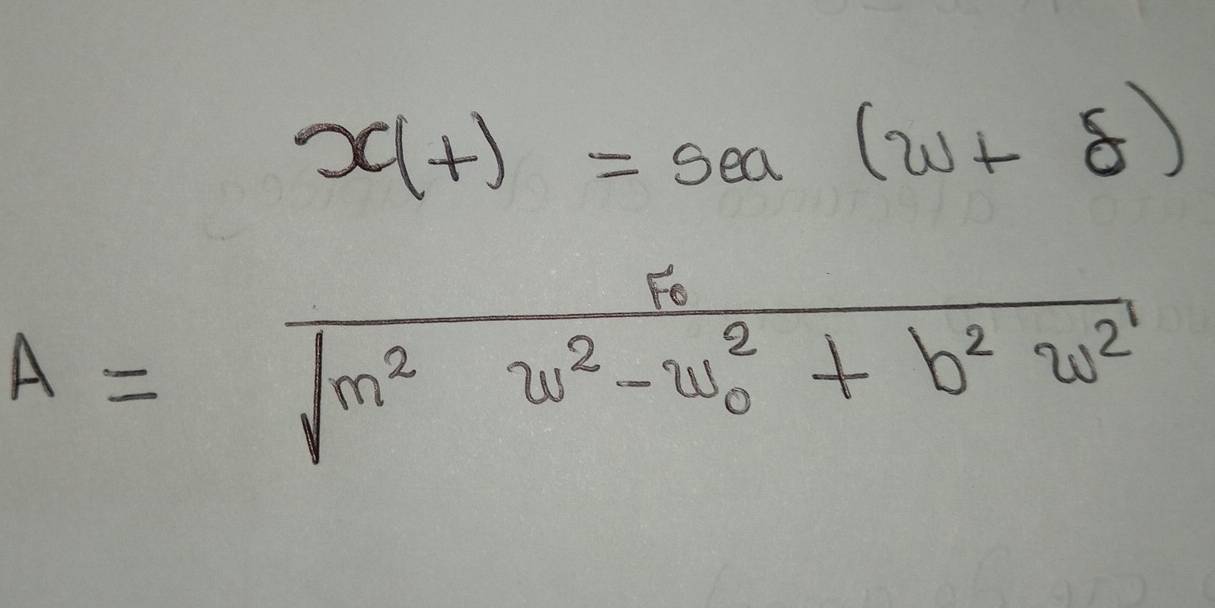 x(t) = sea (w+ δ)
F₀
A = √m² w² - w₀² + b² w²